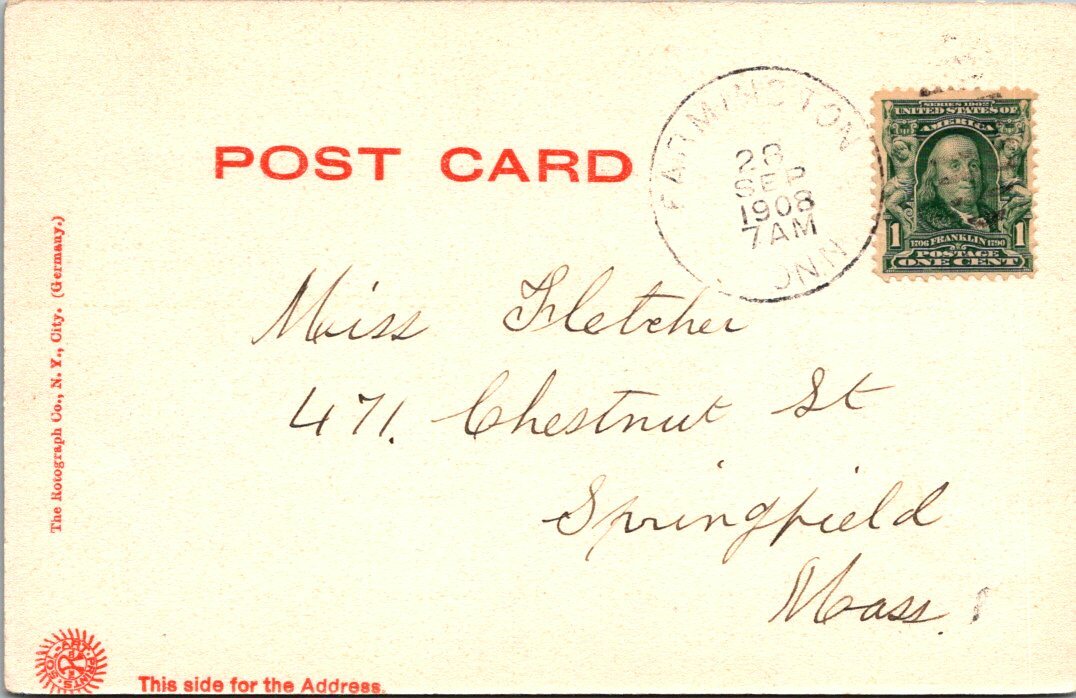 POST CARD
FARMINGTON
CONN
28
SEP
1908
7AM
SERIES 1902
UNITED STATES OF
AMERICA
1 1706 FRANKLIN 1790 1
POSTAGE
ONE CENT
Miss Fletcher
471. Chestnut St
Springfield
Mass.
The Rotograph Co., N. Y., City. (Germany.)
This side for the Address.